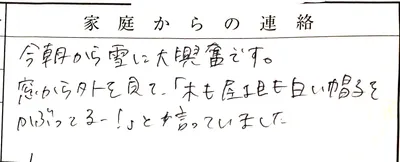 家庭からの連絡
今朝から雪に大興奮です。
窓から外を見て、「木も屋根も白い帽子を
かぶってるー!」と言っていました